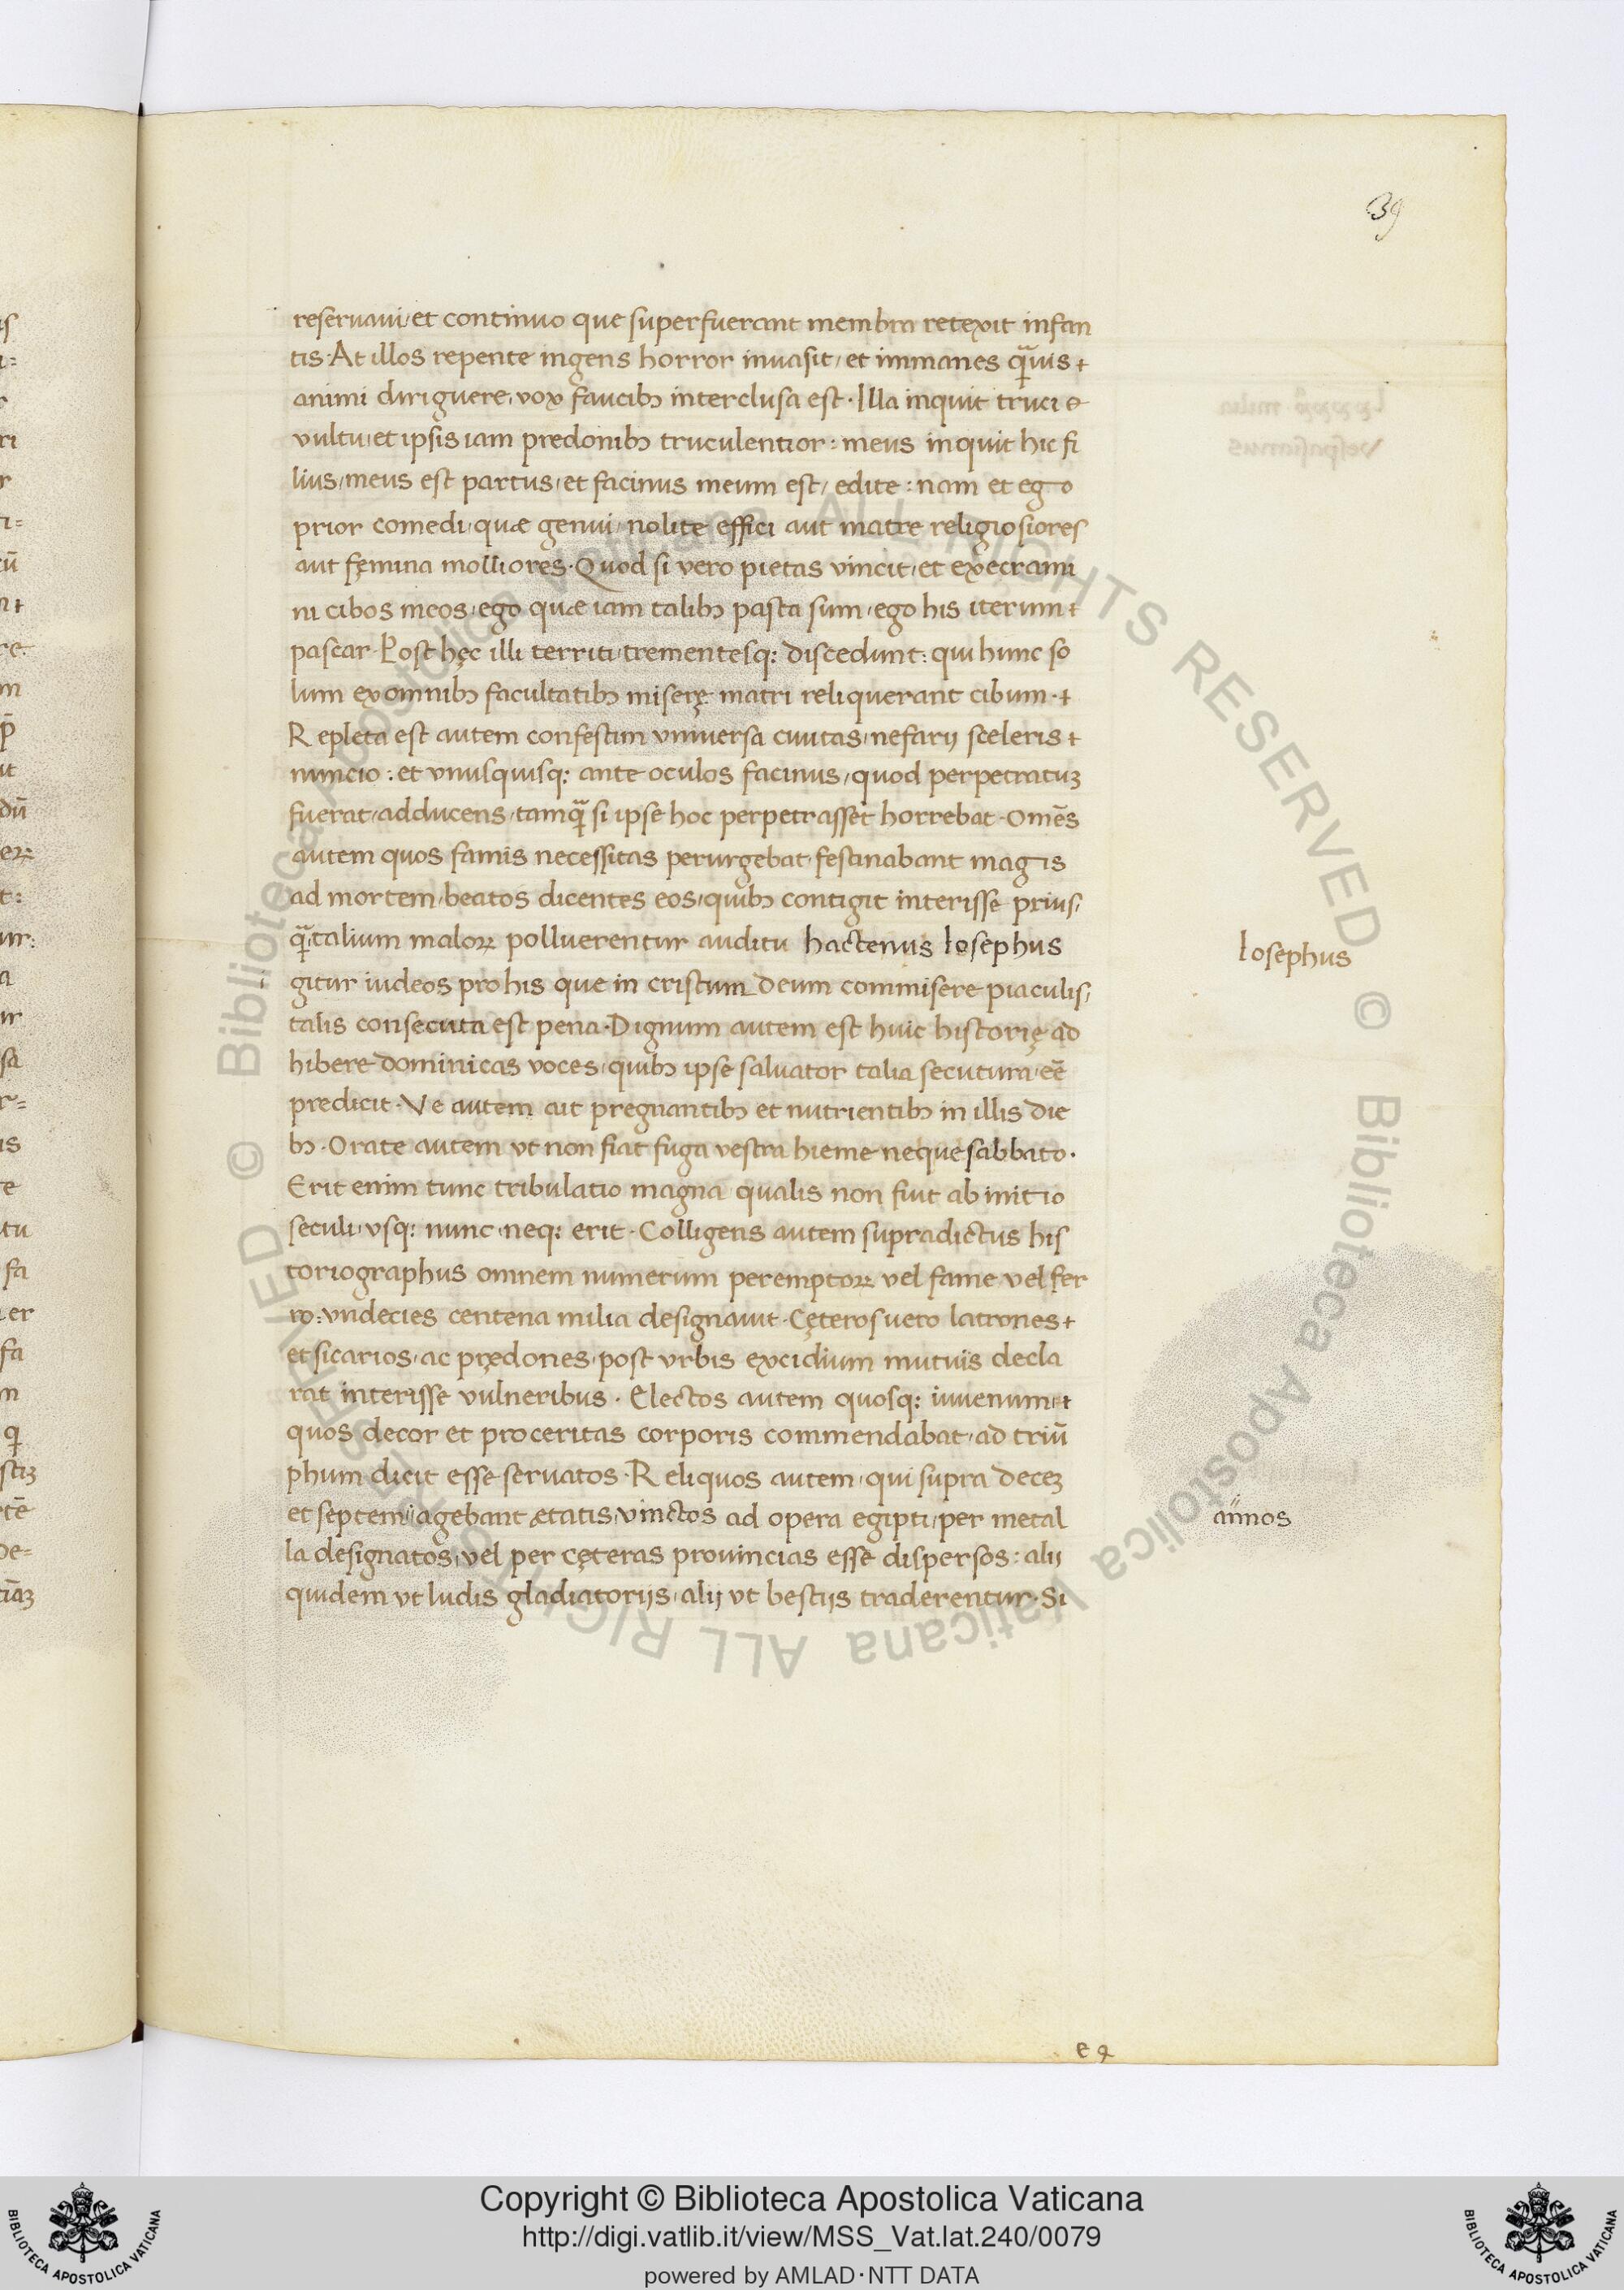 39
reservaui, et continuo que superfuerant membra retexit infan
tis. At illos repente ingens horror inuasit, et immanes q̄uis
animi diriguere, vox faucibꝫ interclusa est. Illa inquit truci
vultu, et ipsis iam predonibꝫ truculentior: meus inquit hic fi
lius, meus est partus, et facinus meum est, edite: nam et ego
prior comedi, quæ genui, nolite effici aut matre religiosiores
aut fęmina molliores. Quod si vero pietas vincit, et execrami
ni cibos meos, ego quæ iam talibꝫ pasta sum, ego his iterum
pascar. Post hęc illi territi, trementesq: discedunt: qui hunc so
lum ex omnibꝫ facultatibꝫ miserę matri reliquerant cibum.
Repleta est autem confestim vniuersa ciuitas, nefarij sceleris
nuncio: et vnusquisq: ante oculos facinus, quod perpetratuꝫ
fuerat, adducens, tamq̄ si ipse hoc perpetrasset horrebat. Omēs
autem quos famis necessitas perurgebat, festinabant magis
ad mortem, beatos dicentes eos, quibꝫ contigit interisse prius,
q̄, talium maloꝝ polluerentur auditu hactenus Iosephus
Iosephus
gitur iudeos pro his que in cristum deum commisere piaculis,
talis consecuta est pena. Dignum autem est huic historię ad
hibere dominicas voces, quibꝫ ipse saluator talia secutura, eē
predicit. Ve autem ait pregnantibꝫ et nutrientibꝫ in illis die
bꝫ. Orate autem vt non fiat fuga vestra hieme neque sabbato.
Erit enim tunc tribulatio magna qualis non fuit ab initio
seculi, vsq: nunc, neq: erit. Colligens autem supradictus his
toriographus omnem numerum peremptoꝝ vel fame vel fer
ro: vndecies centena milia designauit. Cęteros uero latrones
et sicarios, ac prędones, post vrbis excidium mutuis decla
rat interisse vulneribus. Electos autem quosq: iuuenum,
quos decor et proceritas corporis commendabat, ad triū
phum dicit esse seruatos. Reliquos autem, qui supra deceꝫ
et septem agebant ętatis, vinctos ad opera egipti, per metal
annos
la designatos, vel per cęteras prouincias esse dispersos: alij
quidem vt ludis gladiatorijs, alij vt bestijs traderentur. Si
Copyright © Biblioteca Apostolica Vaticana
http://digi.vatlib.it/view/MSS_Vat.lat.240/0079
powered by AMLAD·NTT DATA